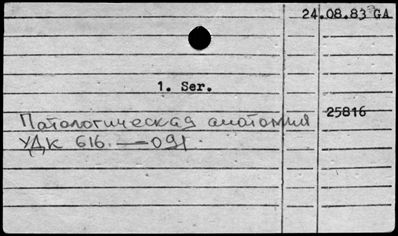 24.08.83 GA
1. Ser.
25816
Патологическая анатомия
УДК 616. — 091.